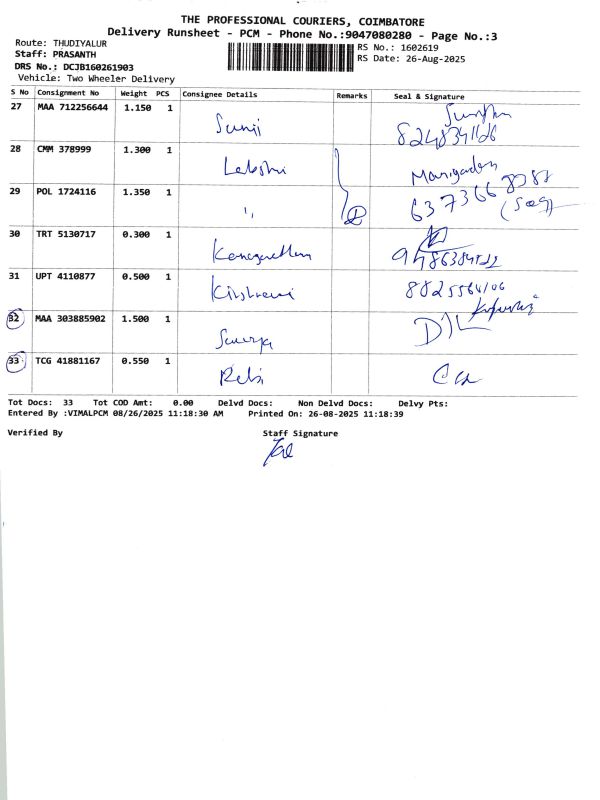 THE PROFESSIONAL COURIERS, COIMBATORE
Delivery Runsheet - PCM - Phone No.:9047080280 - Page No.:3
Route: THUDIYALUR
Staff: PRASANTH
DRS No.: DCJB160261903
Vehicle: Two Wheeler Delivery
RS No.: 1602619
RS Date: 26-Aug-2025
S No Consignment No Weight PCS Consignee Details Remarks Seal & Signature
27 MAA 712256644 1.150 1
28 CMM 378999 1.300 1 Lakshmi
29 POL 1724116 1.350 1 " 2
30 TRT 5130717 0.300 1
31 UPT 4110877 0.500 1
32 MAA 303885902 1.500 1 Surya D/L
33 TCG 41881167 0.550 1 Rebi
Tot Docs: 33 Tot COD Amt: 0.00 Delvd Docs: Non Delvd Docs: Delvy Pts:
Entered By :VIMALPCM 08/26/2025 11:18:30 AM Printed On: 26-08-2025 11:18:39
Verified By Staff Signature